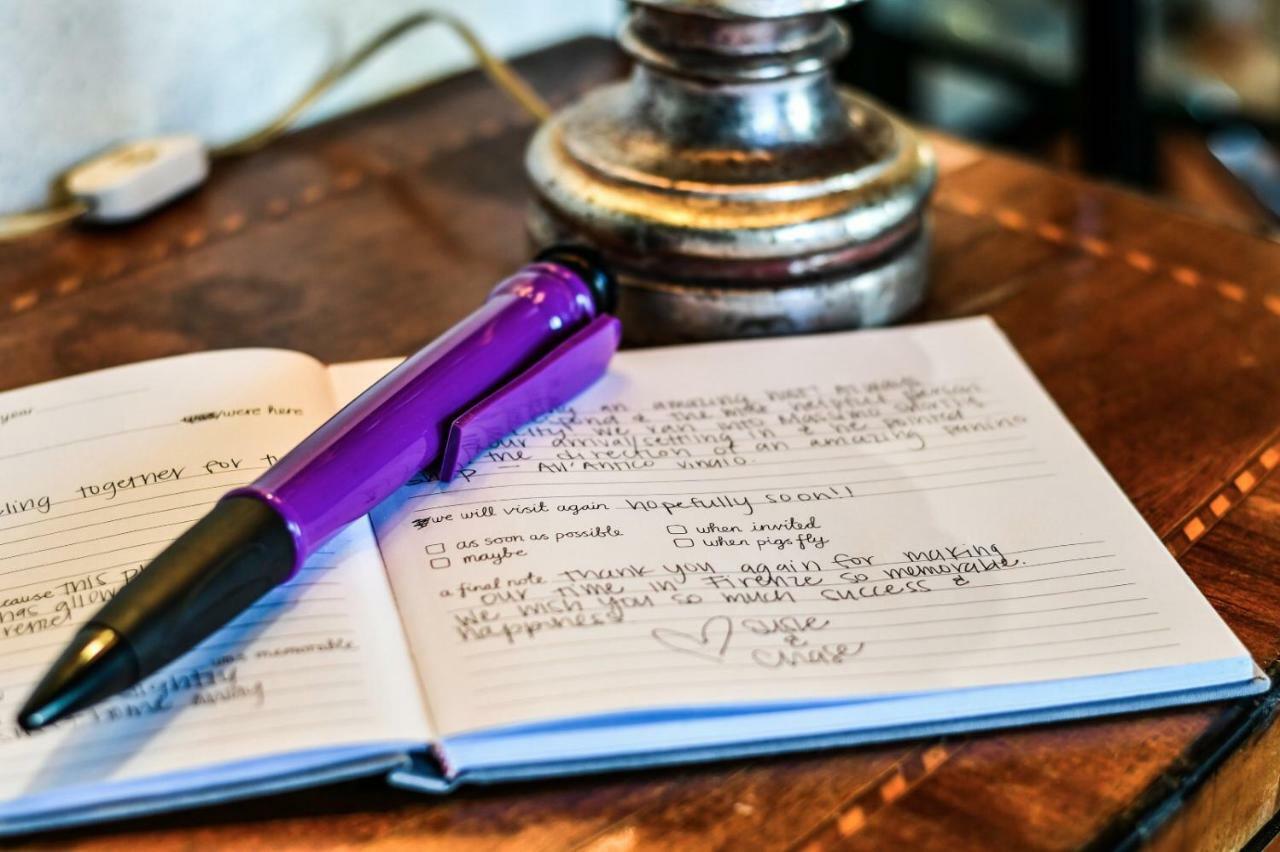 year
were here
eling together for
ecause this
has allow
remel
was memorable
an amazing host! Always
& the most helpful person
we ran into Massimo shortly
our arrival/settling in & he pointed
the direction of an amazing panino
shop - All'Antico Vinaio.
we will visit again hopefully soon!!
as soon as possible
when invited
maybe
when pigs fly
a final note Thank you again for making
our time in Firenze so memorable.
We wish you so much success &
happiness
Susie
&
Chase